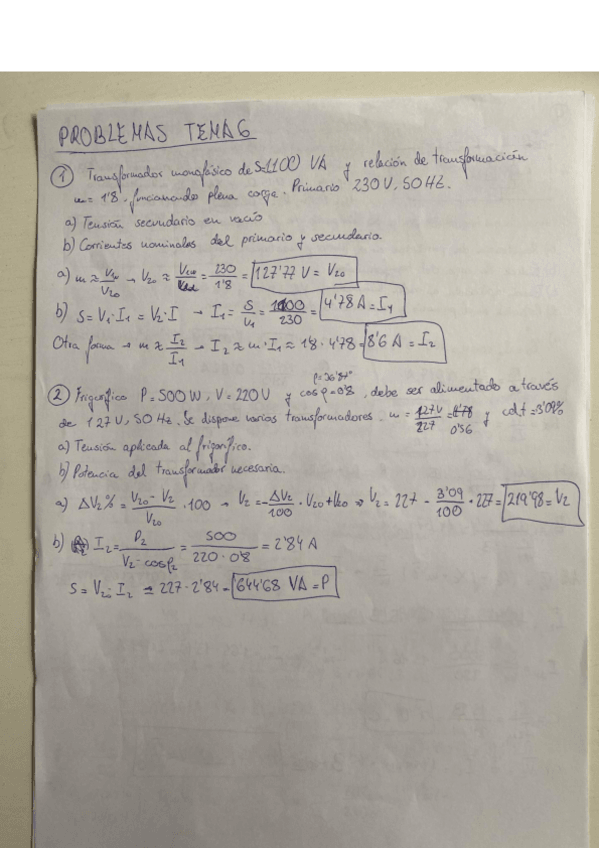 PROBLEMAS TEMA 6
① Transformador monofásico de S=1100 VA y relación de transformación
m = 1'8, funcionando plena carga. Primario 230 V, 50 Hz.
a) Tensión secundario en vacío
b) Corrientes nominales del primario y secundario.
a) m ≈ V₁ₙ/V₂₀ → V₂₀ ≈ V₁ₙ/m = 230/1'8 = 127'77 V = V₂₀
b) S = V₁·I₁ = V₂·I → I₁ = S/V₁ = 1100/230 = 4'78 A = I₁
Otra forma → m ≈ I₂/I₁ → I₂ ≈ m·I₁ ≈ 1'8·4'78 = 8'6 A = I₂
φ=36'87º
② Frigorífico P = 500 W, V = 220 V y cos φ = 0'8, debe ser alimentado a través
de 127 V, 50 Hz. Se dispone varios transformadores. m = 127V/227 = 0'56 y cdt = 3'09%
a) Tensión aplicada al frigorífico.
b) Potencia del transformador necesaria.
a) ΔV₂% = V₂₀ - V₂/V₂₀ · 100 → V₂ = -ΔV₂/100 · V₂₀ + V₂₀ ⇒ V₂ = 227 - 3'09/100 · 227 = 219'98 = V₂
b) I₂ = P₂/V₂·cosφ₂ = 500/220·0'8 = 2'84 A
S = V₂₀·I₂ = 227·2'84 = 644'68 VA = P